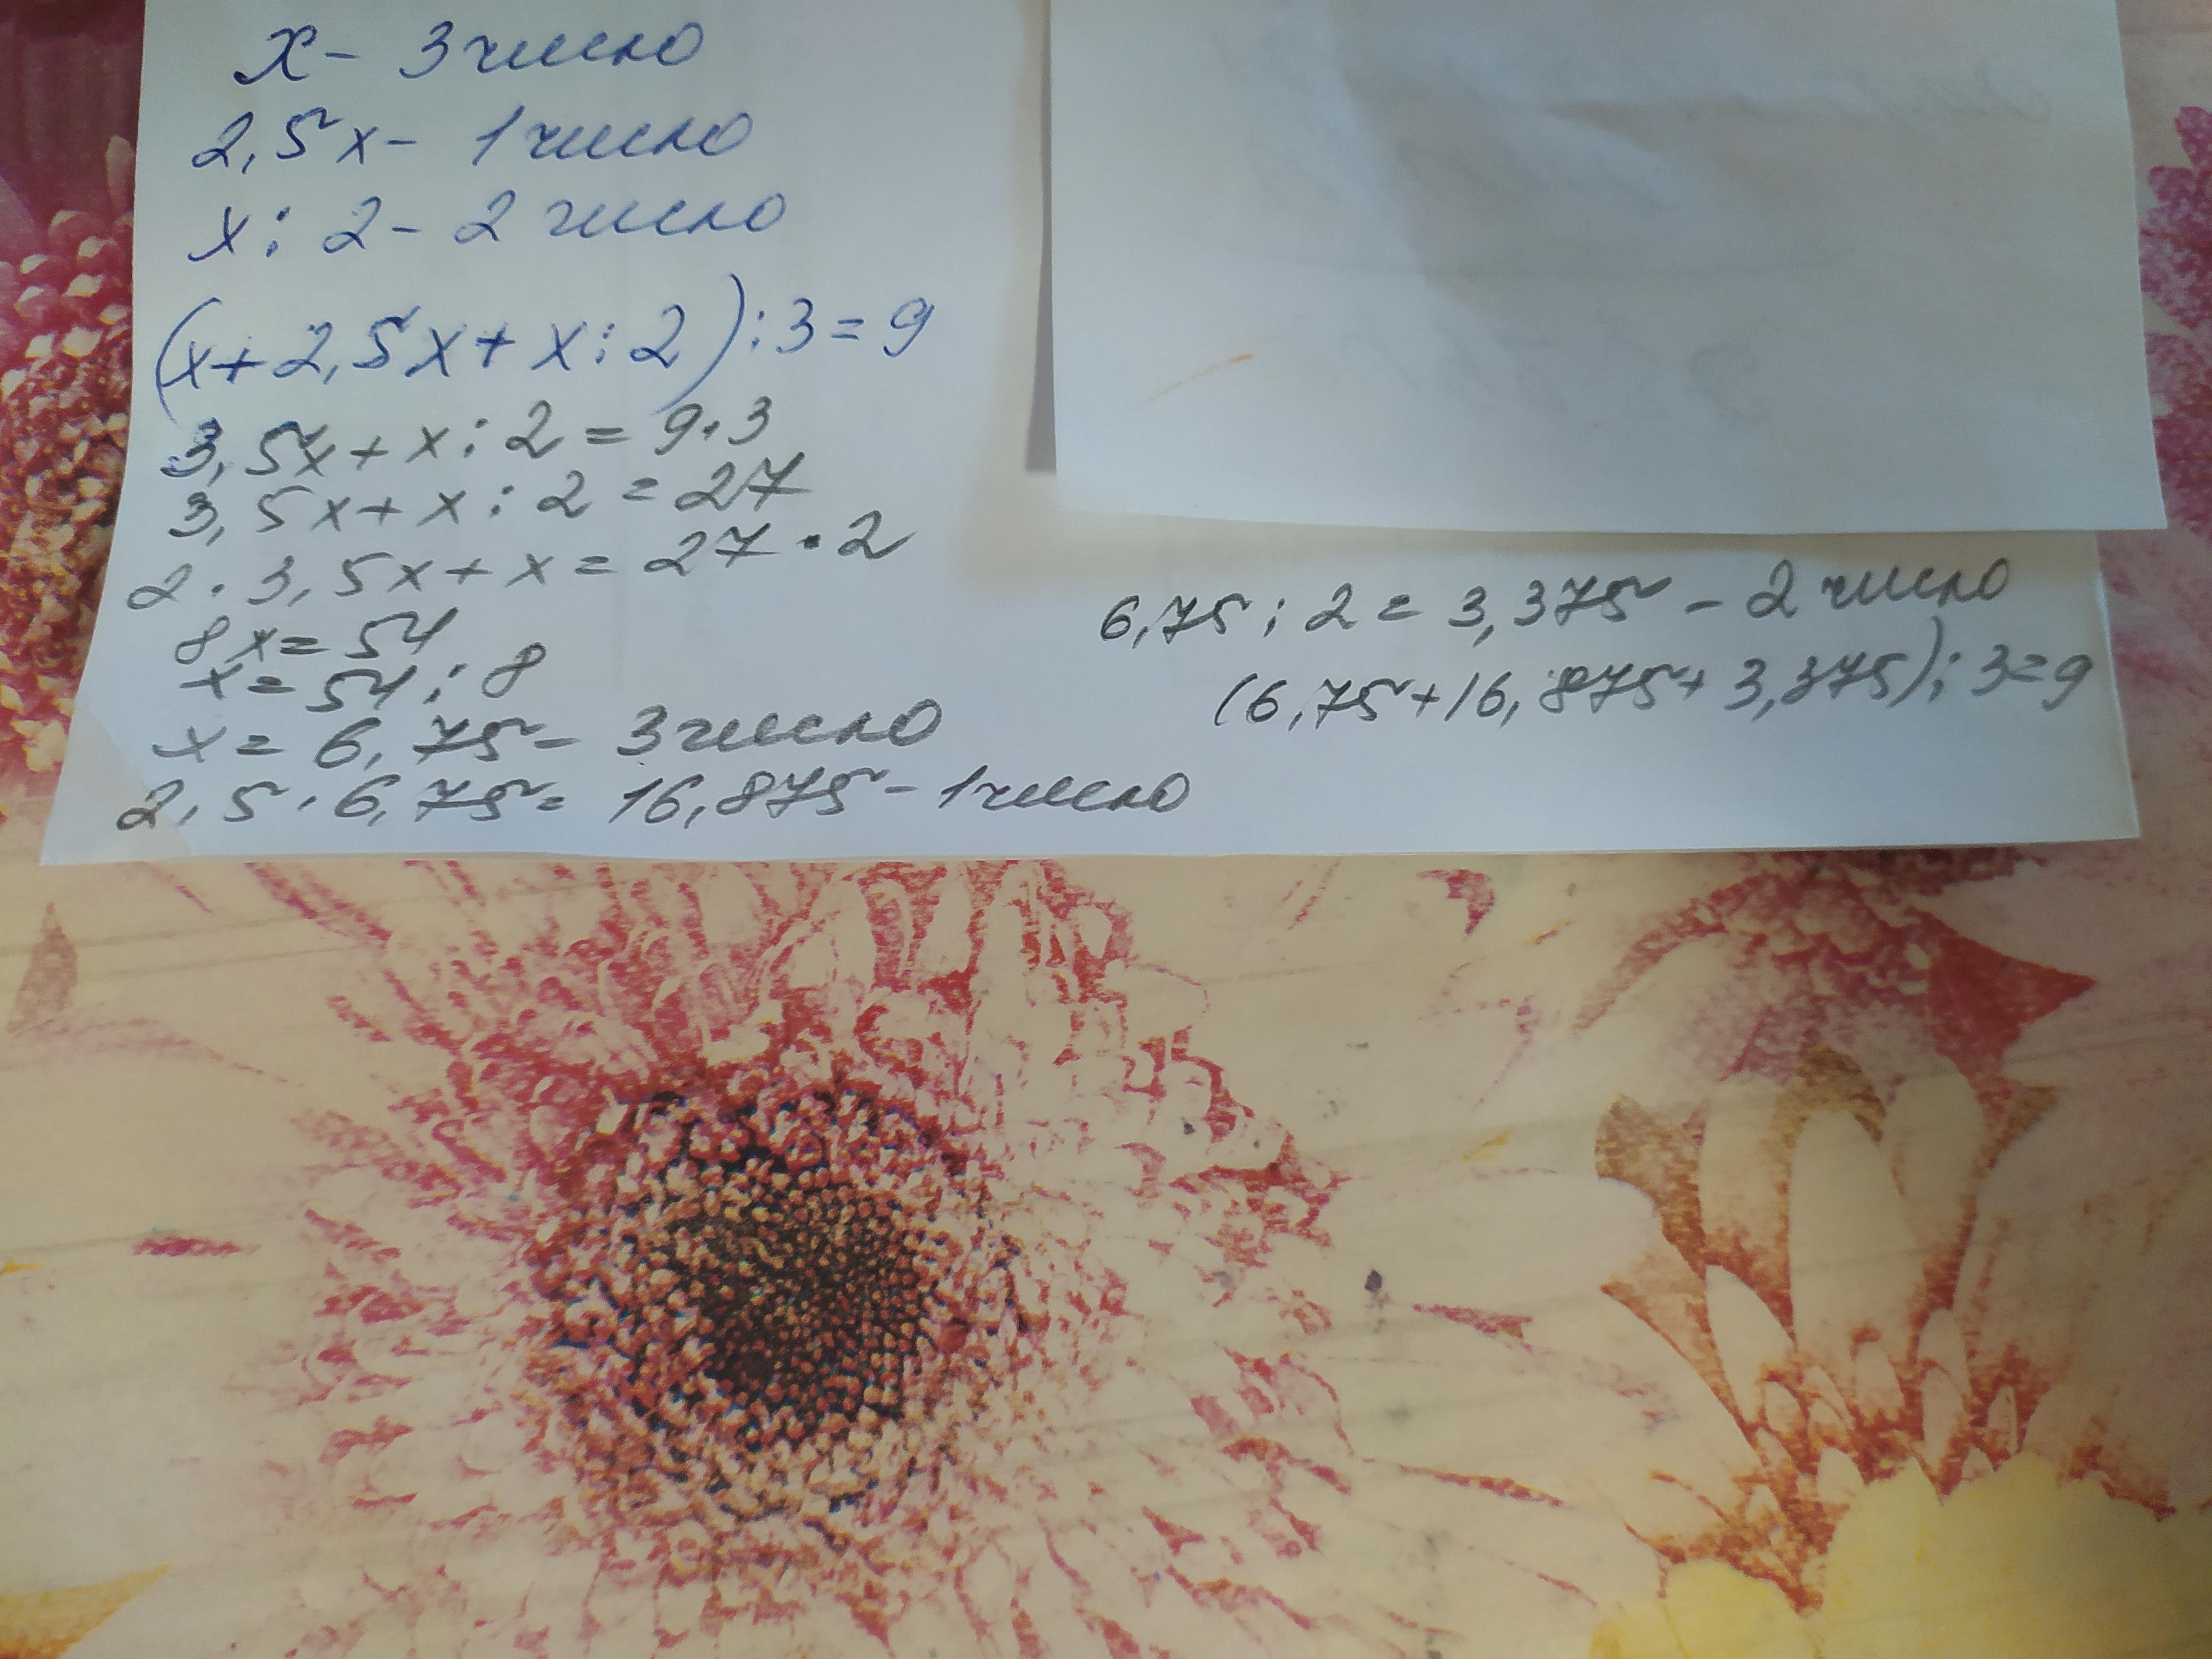 x - 3 число
2,5x - 1 число
x : 2 - 2 число
(x + 2,5x + x : 2) : 3 = 9
3,5x + x : 2 = 9 · 3
3,5x + x : 2 = 27
2 · 3,5x + x = 27 · 2
8x = 54
x = 54 : 8
x = 6,75 - 3 число
2,5 · 6,75 = 16,875 - 1 число
6,75 : 2 = 3,375 - 2 число
(6,75 + 16,875 + 3,375) : 3 = 9